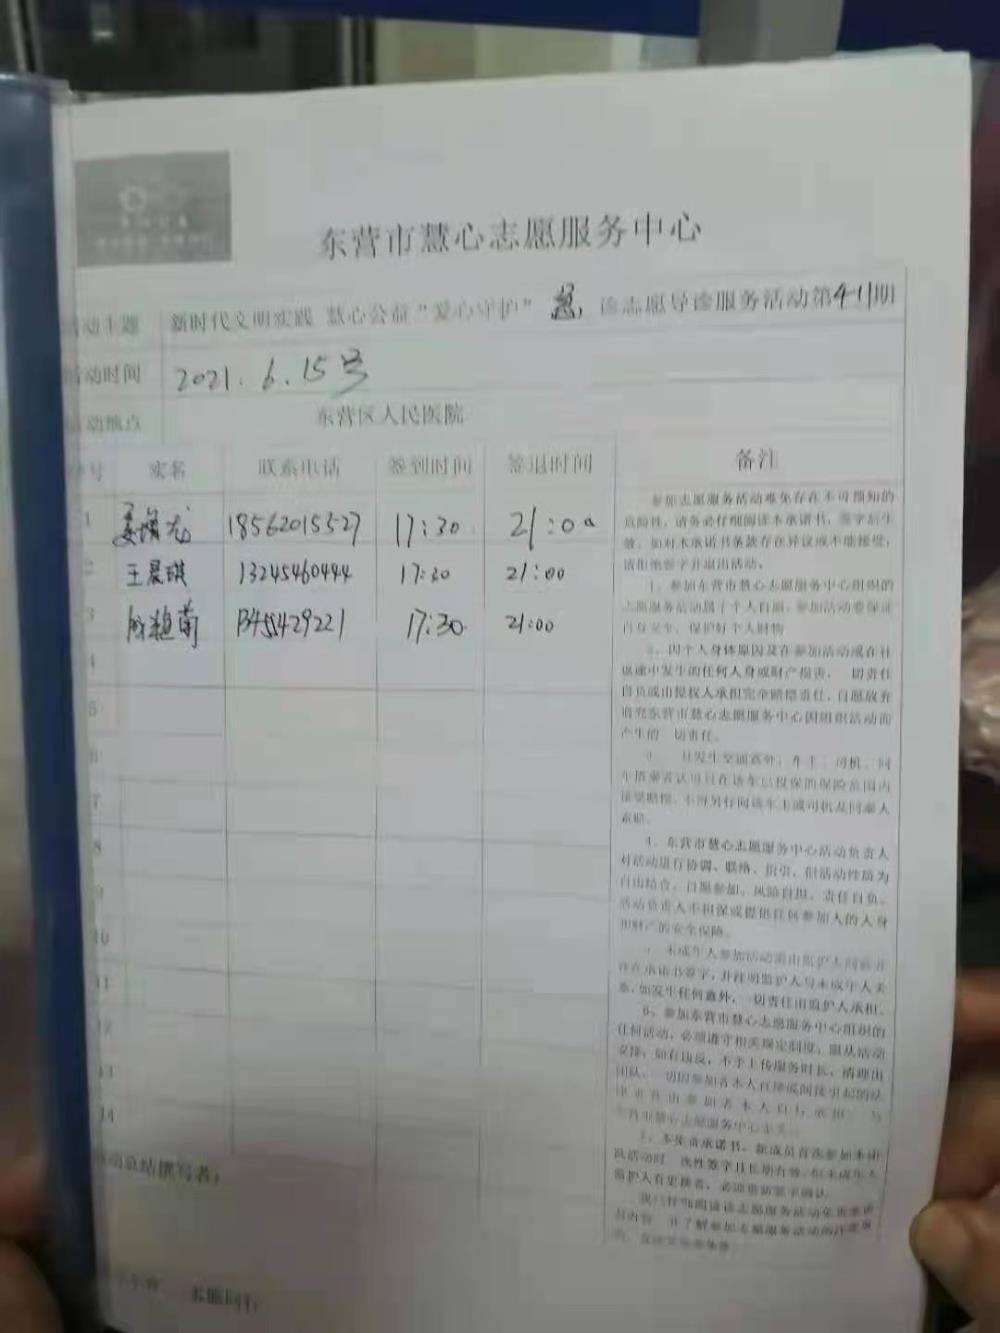 东营市慧心志愿服务中心
活动主题 新时代文明实践 慧心公益“爱心守护” 急 诊志愿导诊服务活动第411期
活动时间 2021.6.15号
活动地点 东营区人民医院
序号 实名 联系电话 签到时间 签退时间 备注
1 姜增龙 18562015527 17:30 21:00
2 王晨琪 13245460444 17:30 21:00
3 17:30 21:00
4
5
6
7
8
9
10
11
12
13
14
参加志愿服务活动难免存在不可预知的
危险性，请务必仔细阅读本承诺书，签字后生
效。如对本承诺书条款存在异议或不能接受，
请拒绝签字并退出活动。
1、参加东营市慧心志愿服务中心组织的
志愿服务活动属于个人自愿，参加活动要保证
自身安全，保护好个人财物
2、因个人身体原因及在参加活动或在往
返途中发生的任何人身或财产损害，一切责任
自负或由侵权人承担完全赔偿责任，自愿放弃
追究东营市慧心志愿服务中心因组织活动而
产生的一切责任。
3、一旦发生交通意外，车主、司机、同
车搭乘者认可只在该车已投保的保险范围内
接受赔偿，不得另行向该车主或司机及同乘人
索赔。
4、东营市慧心志愿服务中心活动负责人
对活动进行协调、联络、指引，但活动性质为
自由结合、自愿参加、风险自担、责任自负。
活动负责人不担保或提供任何参加人的人身
和财产的安全保障。
5、未成年人参加活动需由监护人同意并
在承诺书签字，并注明监护人与未成年人关
系，如发生任何意外，一切责任由监护人承担。
6、参加东营市慧心志愿服务中心组织的
任何活动，必须遵守相关规定制度，服从活动
安排，如有违反，不予上传服务时长，清理出
团队。一切因参加者本人直接或间接引起的法
律责任由参加者本人自行承担，与
东营市慧心志愿服务中心无关。
7、本免责承诺书，敦成员首次参加本团
队活动时一次性签字且长期有效，但未成年人
监护人有更换者，必须重新签字确认
我已仔细阅读该志愿服务活动免责承诺
书内容，并了解参加志愿服务活动的
活动总结撰写者：
志愿同行